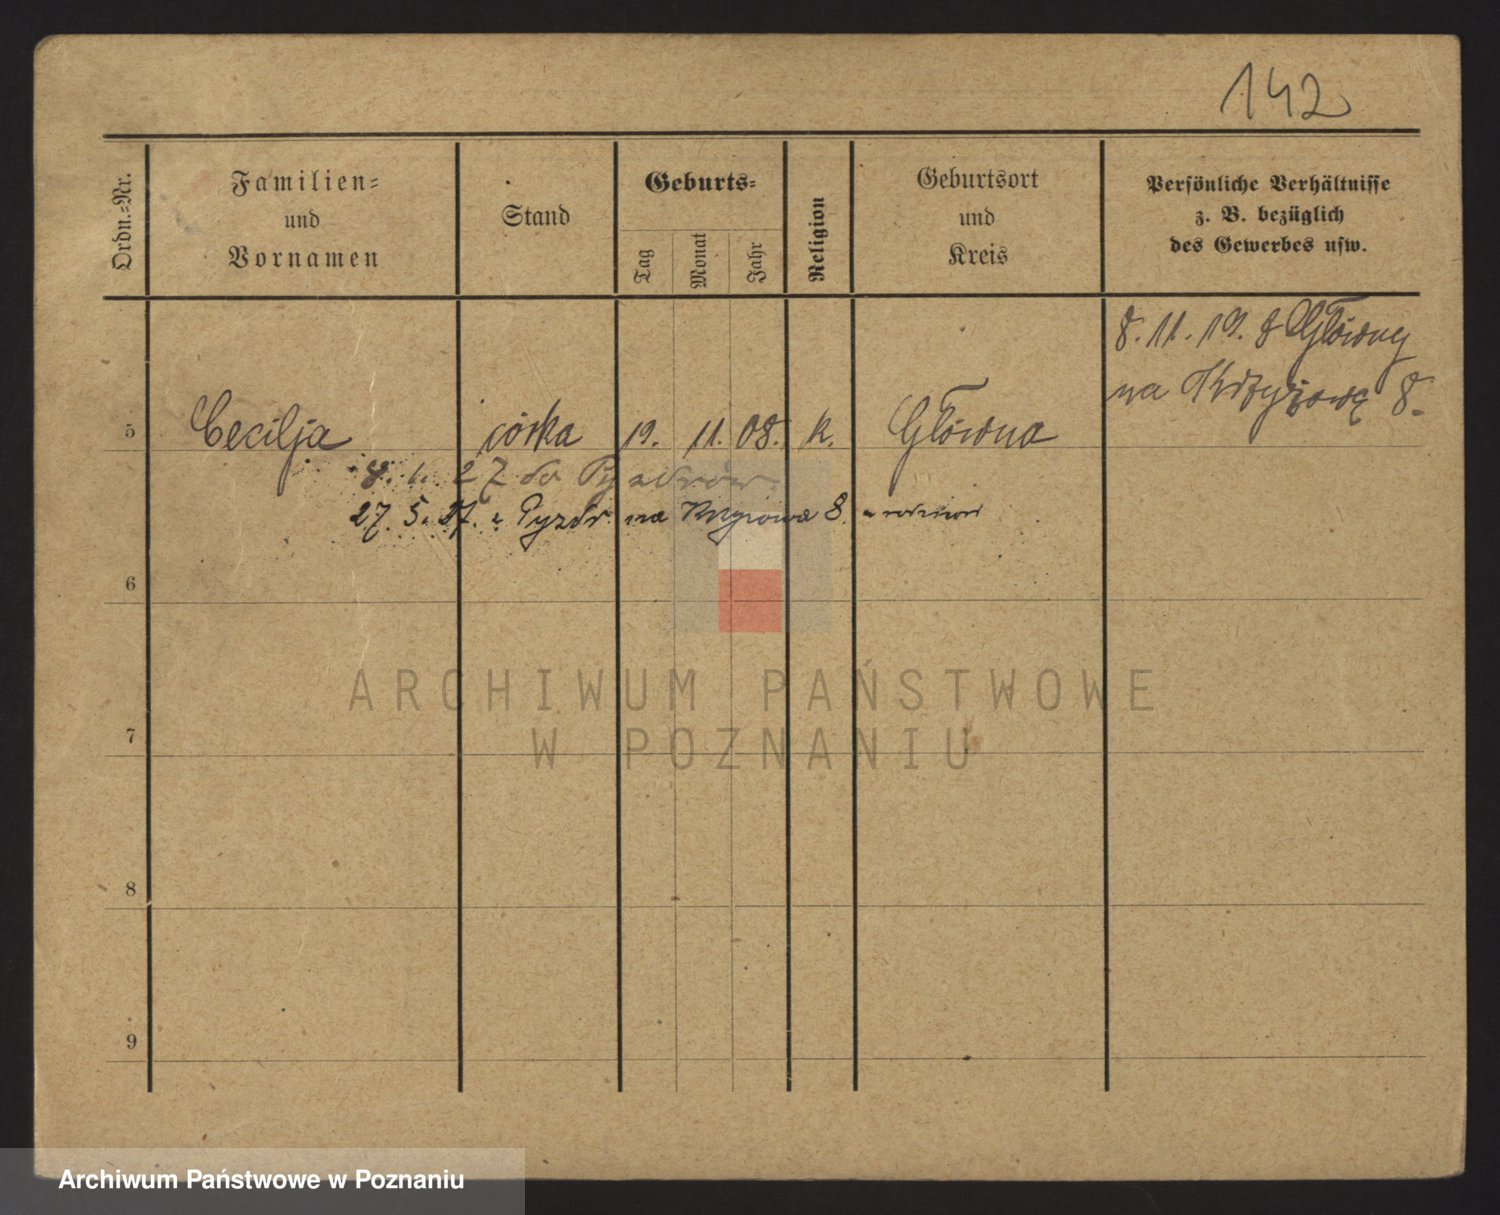 142
Ordn.-Nr.
Familien-
und
Vornamen
Stand
Geburts-
Tag
Monat
Jahr
Religion
Geburtsort
und
Kreis
Persönliche Verhältnisse
z. B. bezüglich
des Gewerbes usw.
8. 11. 19. z Główny
na Krzyżową 8.
5 Cecilja córka 19. 11. 08. k. Główna
27 do Pyzdrów
27. 5. 27. z Pyzdr na 8.
6
7
8
9
ARCHIWUM PAŃSTWOWE
W POZNANIU
Archiwum Państwowe w Poznaniu